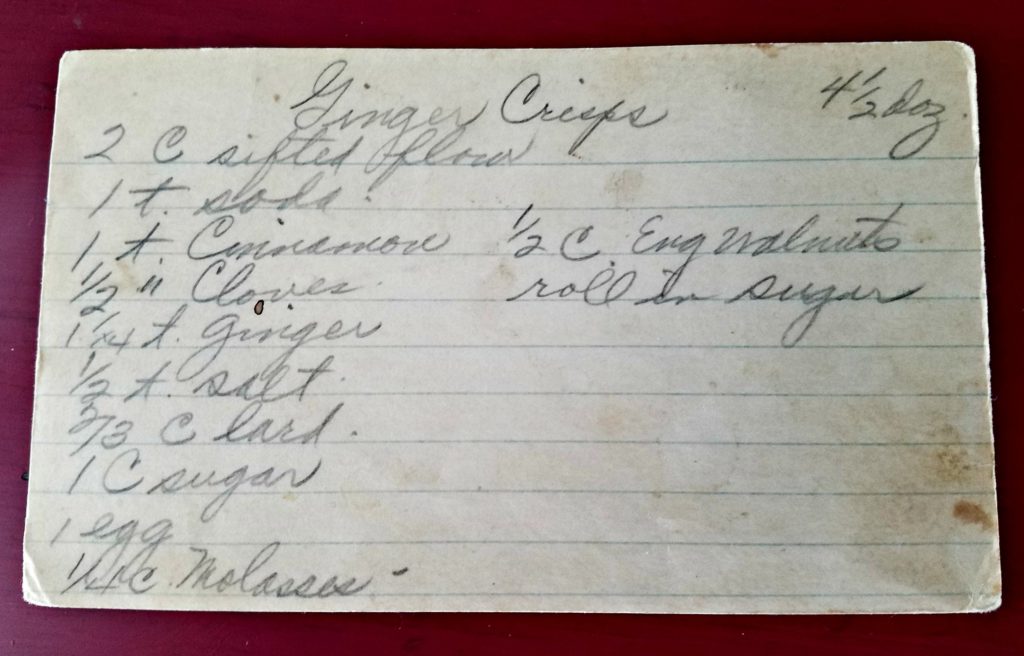 Ginger Crisps 4 1/2 doz.
2 C sifted flour
1 t. soda.
1 t. Cinnamon
1/2 " Cloves.
1 1/4 t. Ginger
1/2 t. salt.
2/3 C lard.
1 C sugar
1 egg
1/4 c. Molasses -
1/2 C. Eng Walnuts
roll in sugar